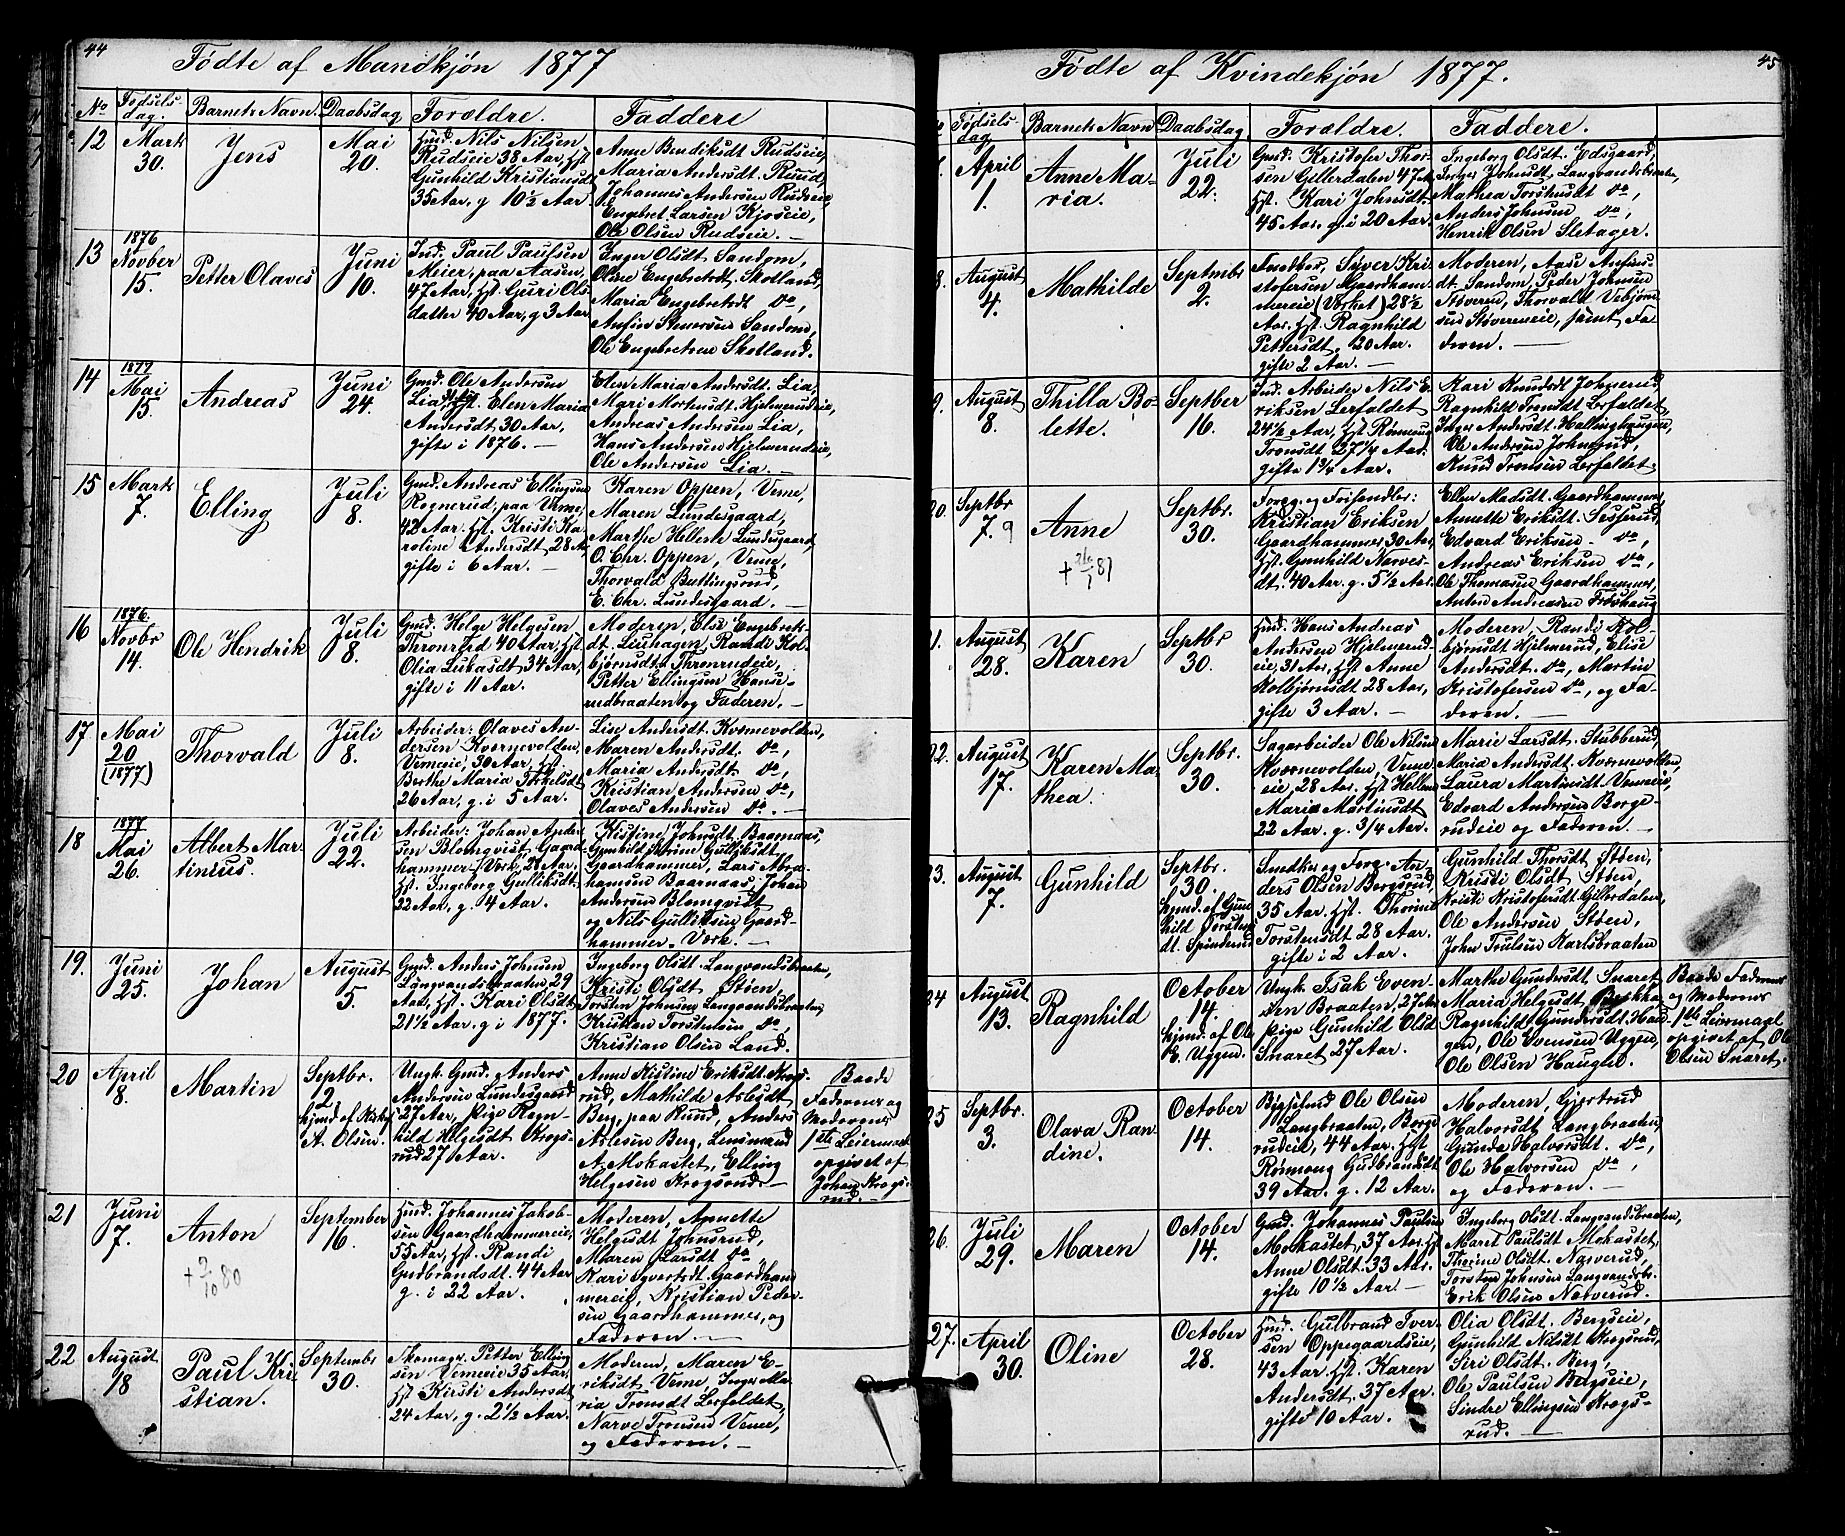 44
Födte af Mandkjön 1877
No Födsels- dag. Barnets Navn. Daabsdag Forældre. Faddere
12 Mark 30. Jens Mai 20.
Hmd. Nils Nilsen
Rudseie 38 Aar, Hst
Gunhild Kristiansdt
35 Aar, g 10½ Aar
Anne Bendiksdt Rudseie,
Maria Andersdt. Ruud,
Johannes Andersen Rudseie
Engebret Larsen Kjøseie,
Ole Olsen Rudseie. —
13 1876 Novber 15. Petter Olaves Juni 10.
Ind. Paul Paulsen
Meier, paa Aasen,
47 Aar, Hst. Guri Ols-
datter 40 Aar, g 3 Aar
Inger Olsdt Sandom,
Oline Engebretsdt, Skotland,
Maria Engebretsdt do,
Anfin Stenersen Sandom,
Ole Engebretsen Skotland.
14 1877 Mai 15. Andreas Juni 24.
Gmd. Ole Andersen
Lia, Hst. Elen Maria
Andersdt, 30 Aar,
gifte i 1876. —
Elen Maria Andersdt. Lia,
Mari Mortensdt. Hjelmerudeie,
Andreas Andersen Lia,
Hans Andersen Hjelmerudeie,
Ole Andersen Lia. —
15 Mark 7. Elling Juli 8.
Gmd. Andreas Ellingsen
Rognerud, paa Veme,
42 Aar. Hst. Kristi Ka-
roline Andersdt 28 Aar
gifte i 6 Aar.
Karen Oppen, Veme,
Maren Lundesgaard,
Marthe Helene Lundesgaard,
O. Chr. Oppen, Veme,
Thorvald Buttingsrud,
E. Chr. Lundesgaard. —
16 1876. Novbr 14. Ole Hendrik Juli 8.
Gmd. Helge Helgesen
Thronrud 40 Aar, Hst
Olia Lukasdt, 34 Aar,
gifte i 11 Aar.
Moderen, Else Engebrets-
dt. Leuhagen, Randi Kol-
bjørnsdt. Thronrudeie,
Petter Ellingsen Hanse-
rudbraaten og Faderen.
17 Mai 20 (1877) Thorvald Juli 8.
Arbeider: Olaves An-
dersen Kvernevolden,
Vemeeie, 30 Aar, Hst.
Berthe Maria Therkildsdt
26 Aar, g. i 5 Aar.
Lise Andersdt. Kvernevolden,
Maren Andersdt. do,
Maria Andersdt do,
Kristian Andersen do,
Olaves Andersen do. —
18 1877 Mai 26. Albert Mar- tinius. Juli 22.
Arbeider: Johan Ander-
sen Blomqvist Gaard-
hammer Værk, 28 Aar,
Hst. Ingeborg Gulliksdt.
22 Aar, g. 4 Aar.
Kristine Johnsdt. Baarnaas,
Gunhild Karine Gulliksdt.
Gaardhammer, Lars Abra-
hamsen Baarnaas, Johan
Andersen Blomqvist
og Nils Gulliksen Gaard-
hammer Værk. —
19. Juni 25. Johan August 5.
Gmd. Anders Johnsen
Langvandsbraaten 29
Aar, Hst. Kari Olsdt
21½ Aar, g i 1877.
Ingeborg Olsdt. Langvandsbraaten,
Kristi Olsdt Støen,
Torsten Johnsen Langvandsbraaten,
Kristian Torstensen do,
Kristian Olsen Land.
20 April 8. Martin Septbr. 12. hjmd af
A. Olsen.
Ungk. Gmd. Anders
Andersen Lundesgaard
27 Aar, Pige Ragn-
hild Helgesdt. Krogs-
rud 27 Aar.
Anne Kistine Eriksdt Krogs-
rud, Mathilde Arlesdt
Berg, paa Ruud, Anders
Arlesen Berg, Lensmand
A. Mokastet, Elling
Helgesen Krogsrud. —
Baade
Faderens og
Moderens
1ste Leiermaal
opgivet af
Johan Krogs-
rud. —
21 Juni 7. Anton + 2/10 80 September 16.
Hmd. Johannes Jakob-
sen Gaardhammereie,
55 Aar, Hst. Randi
Gudbrandsdt. 44 Aar
g. i 22 Aar.
Moderen, Annette
Helgesdt Johnsrud,
Maren Larsdt do
Kari Syversdt. Gaardham-
mereie, Kristian Peder-
sen Gaardhammer, og
Faderen. —
22 August 18 Paul Kri- stian. Septembr 30.
Skomagr. Petter Elling-
sen Vemeeie 35 Aar,
Hst Kirsti Andersdt
24 Aar, g. 2½ Aar.
Moderen, Maren E-
riksdt Veme, Inger Ma-
ria Tronsdt Lerfaldet,
Narve Tronsen Veme,
og Faderen. —
45
Födte af Kvindekjön 1877.
No Födsels- dag Barnets Navn Daabsdag Forældre. Faddere.
April 1. Anne Ma- ria. Juli 22.
Gmd. Kristofer Thor-
sen Gillerdalen 47 Aar
Hst. Kari Johnsdt
45 Aar. g. i 20 Aar.
Ingeborg Olsdt. Edsgaard,
Inger Johnsdt, Langvandsbraaten,
Mathea Torstensdt do,
Anders Johnsen do,
Henrik Olsen Sletager.
8. August 4. Mathilde Septmbr 2.
Indber, Syver Kri-
stofersen Gaardham-
mereie (Værket) 28½
Aar. Hst. Ragnhild
Pettersdt. 20 Aar.
gifte 2 Aar. —
Moderen, Aase Anfins-
dt. Sandom, Peder Johnsen
Støveren, Thorvald Vebjørn-
sen Støvereneie, samt Fa-
deren. —
9. August 8. Thilla Bo- lette. Septber 16.
Ind. Arbeider Nils E-
riksen Lerfaldet
24½ Aar, Hst. Rønnaug
Tronsdt 27¼ Aar.
gifte 1¾ Aar.
Kari Knudsdt Johnsrud
Ragnhild Tronsdt Lerfaldet,
Inger Andersdt. Hallinghaugen,
Ole Andersen Johnsrud,
Knud Tronsen Lerfaldet.
20. Septbr 7. 9 Anne + 26/1 81 Septbr. 30.
Foreg. og Frihandler:
Kristian Eriksen
Gaardhammer 30 Aar,
Hst. Gunhild Narves-
dt. 40 Aar g. 5½ Aar.
Ellen Madsdt. Gaardhammer,
Annette Eriksdt. Sesserud,
Edvard Eriksen do,
Andreas Eriksen do,
Ole Thomasen Gaardhammer,
Anders Andreasen Frøshaug
21. August 28. Karen Septbr 30.
Hmd. Hans Andreas
Andersen Hjelmerud-
eie, 31 Aar, Hst Anne
Kolbjørnsdt 28 Aar,
gifte 3 Aar. —
Moderen, Randi Kol-
bjørnsdt Hjelmerud, Elise
Andersdt. do, Martin
Kristofersen do, og Fa-
deren. —
22. August 17. Karen Ma- thea. Septbr. 30.
Sagarbeider Ole Nilsen
Kvernevolden, Veme-
eie, 28 Aar. Hst Hellene
Maria Martinsdt
22 Aar. g. 3/4 Aar.
Marie Larsdt. Stubberud,
Maria Andersdt. Kvernevolden,
Laura Martinsdt Vemeeie,
Edvard Andersen Borge-
rudeie og Faderen. —
23. August 7. Gunhild Septbr. 30. hjmd. af Gun-
hild Torstens-
dt. Spinderud
Smedku og Forg. An-
ders Olsen Bergsrud,
35 Aar. Hst. Thorine
Torstensdt 28 Aar.
gifte i 2 Aar.
Gunhild Thorsdt Støen,
Kristi Olsdt Støen,
Kristi Kristofersdt. Gillerdalen,
Ole Andersen Støen,
John Trulsen Karlsbraaten
24 August 13. Ragnhild October 14. hjmd. af Ole
E. Uggen.
Ungk. Isak Even-
sen Braaten, 27 Aar
Pige Gunhild Olsdt
Snaret 27 Aar.
Marthe Gundersdt. Snaret,
Maria Helgesdt,
Ragnhild Gundersdt. Hau-
gen, Ole Evensen Uggen,
Ole Olsen Hauglid.
Baade Faderens
og Moderens
1ste Leiermaal
opgivet af Ole
Olsen Snaret.
25 Septbr. 3. Olava Ran- dine. October 14.
Bygselmd Ole Olsen
Langbraaten, Borge-
rudeie, 44 Aar. Hst
Rønnaug Gudbrandsdt
39 Aar. g. 12 Aar.
Moderen, Gjertrud
Halvorsdt Langbraaten,
Gunda Halvorsdt. do,
Ole Halvorsen do,
og Faderen. —
26. Juli 29. Maren October 14.
Gmd. Johannes Paulsen
Mokastet, 37 Aar. Hst
Anne Olsdt. 33 Aar.
gifte 10½ Aar. —
Ingeborg Olsdt. Langvandsbraaten,
Marit Paulsdt Mokastet,
Thorine Olsdt. Narverud,
Torsten Johnsen Langvandsbr.
Erik Olsen Narverud.
27. April 30. Oline October 28.
Hmd. Gulbrand Iver-
sen Oppegaardseie,
43 Aar. Hst. Karen
Andersdt. 37 Aar.
gifte 10 Aar.
Olia Olsdt. Bergseie,
Gunhild Nilsdt Krogsrud,
Siri Olsdt. Berg,
Ole Paulsen Bergseie,
Sindre Ellingsen Krogs-
rud. —